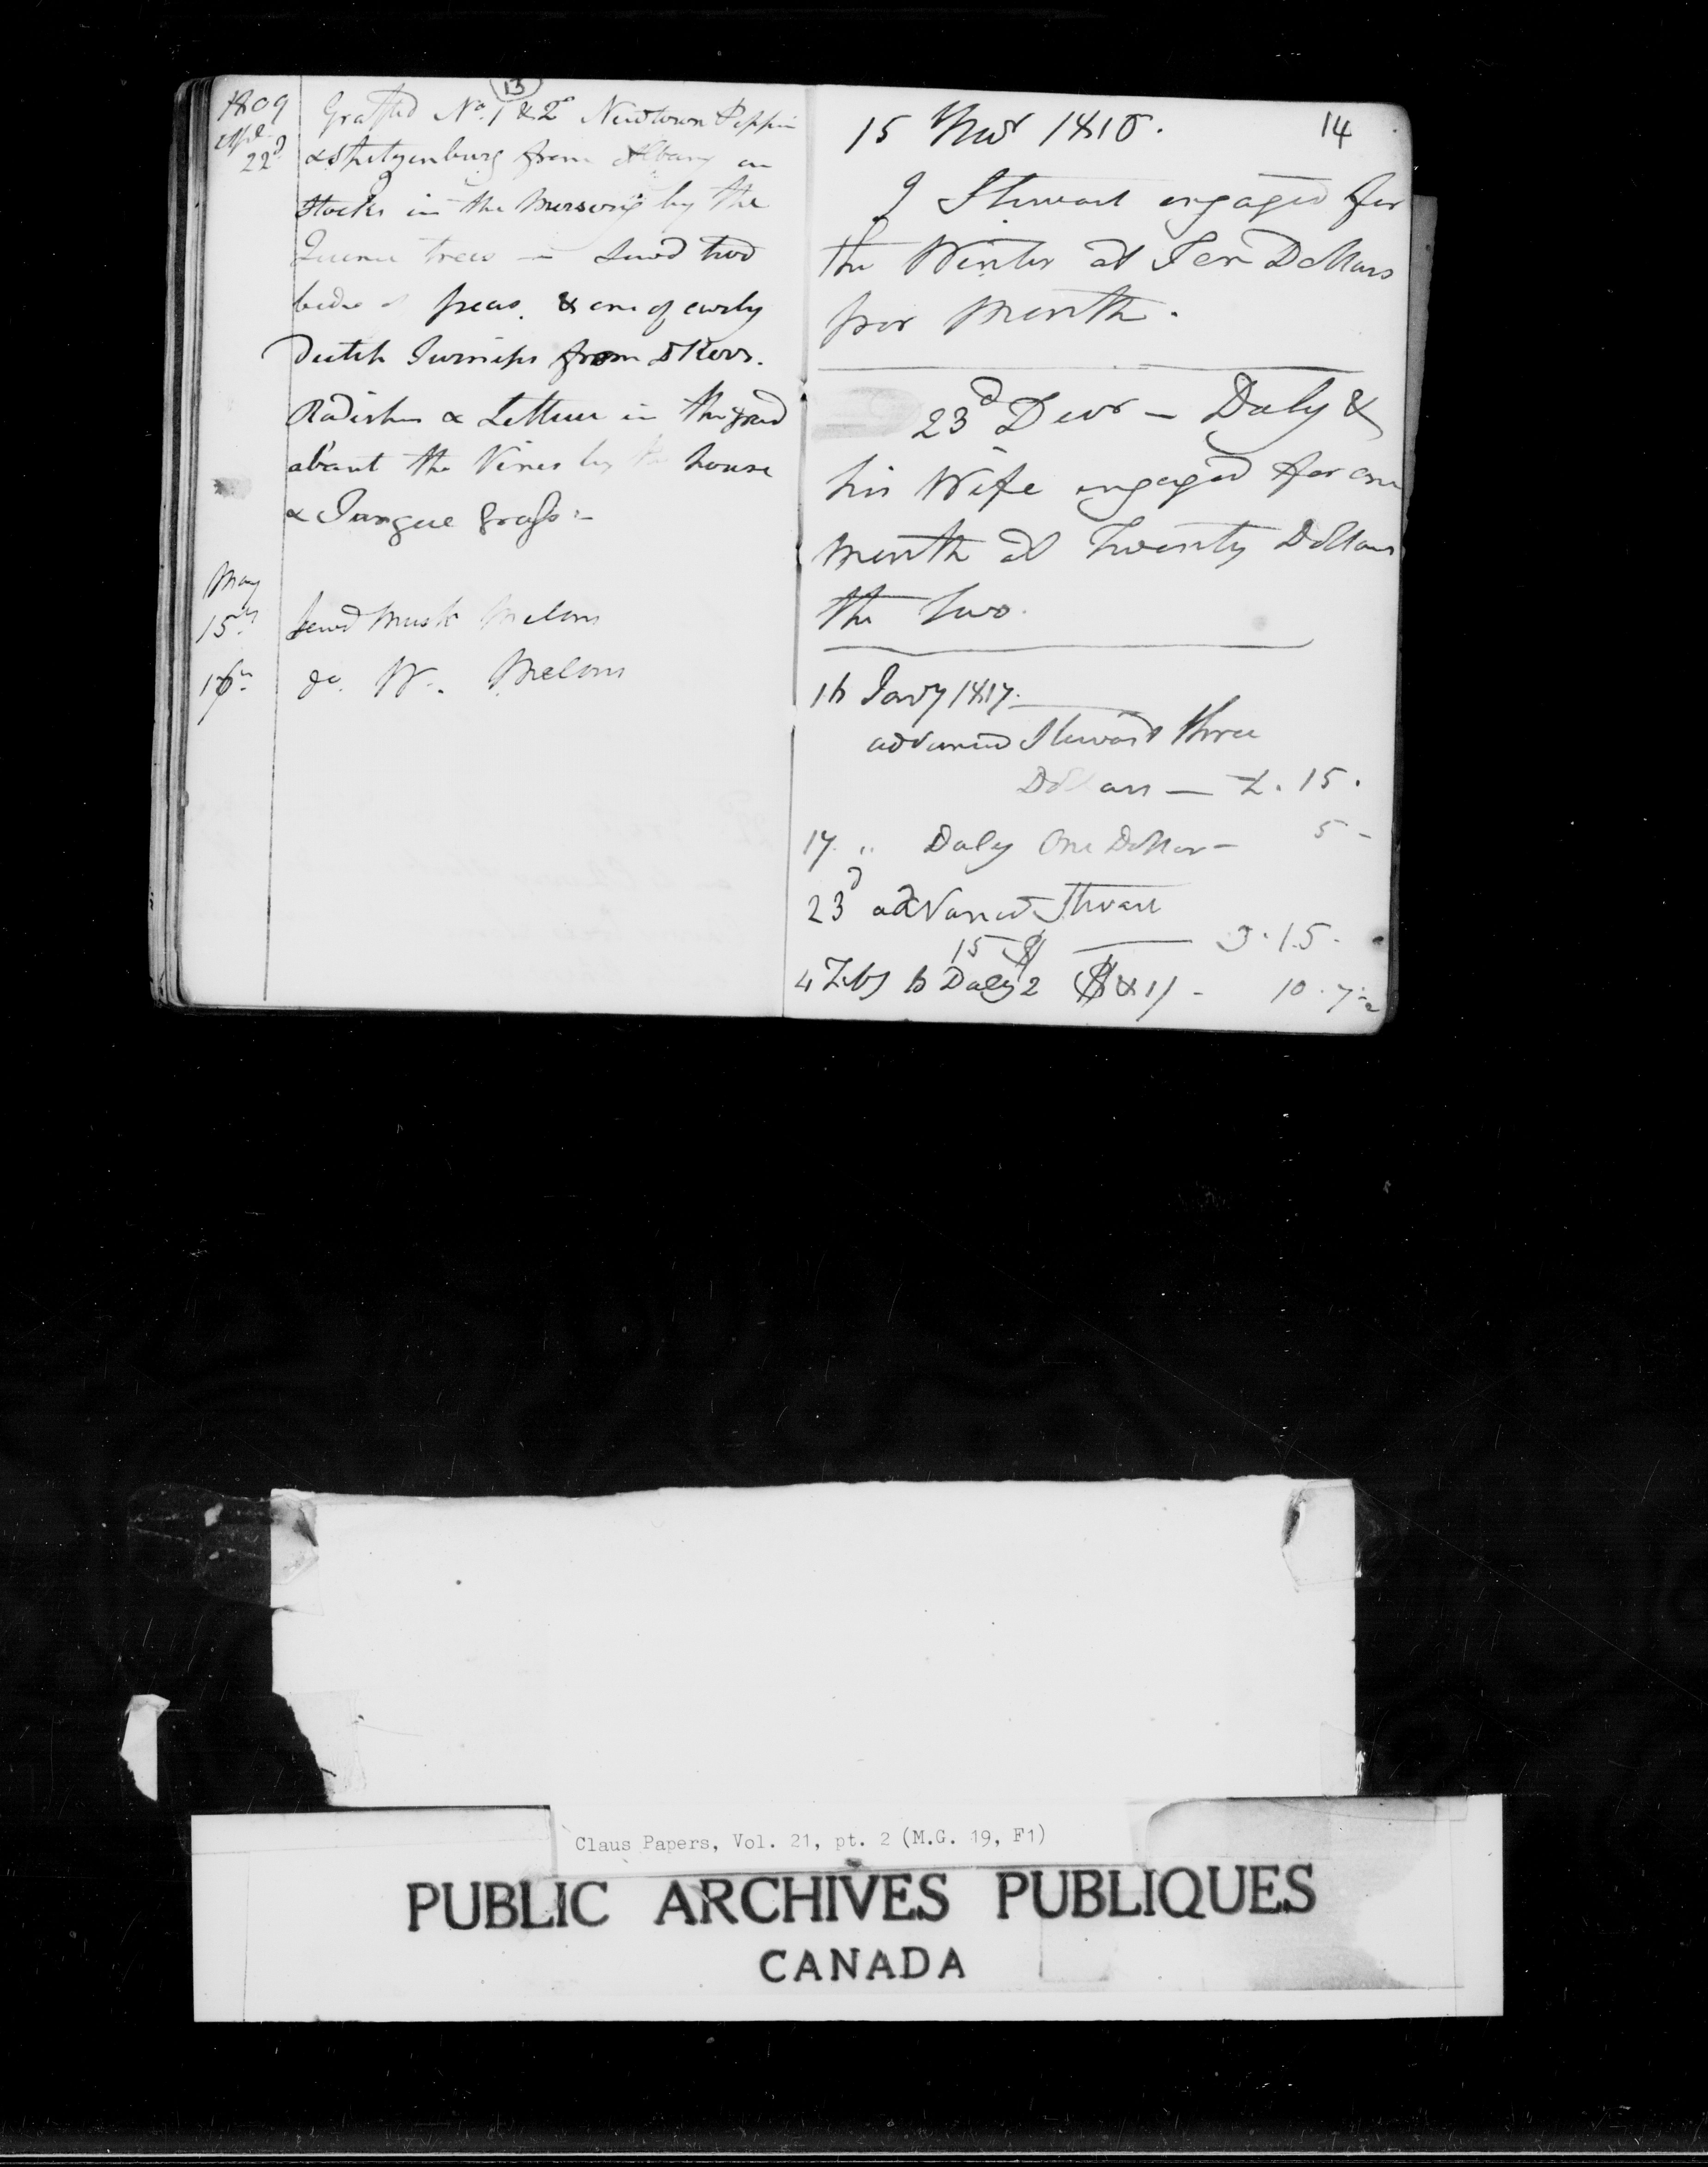 13
1809
Apl
22d
Grafted No. 1 & 2 Newtown Pippin
& Spitzenburg from Albany on
Stocks in the Nursery by the
Quince trees — Sewd two
beds of peas. & one of early
Dutch Turnips from D Kerr.
Radishes & Lettuce in the yard
about the Vines by the house
& Tungue Grass :-
May
15th Sewd Musk Melons
16th do. W. Melons
14
15 Novr 1816.
J Stewart engaged for
the Winter at Ten Dollars
per Month.
23d Decr — Daly &
his Wife engaged for one
month at Twenty Dollars
the two.
16 Jany 1817.
advanced Steward three
Dollars — £. 15.
17 " Daly One Dollar — 5 -
23d advanced Stewart
15 $ — 3. 15.
4 Feby to Daly 2 $ & 1/ - 10. 7
Claus Papers, Vol. 21, pt. 2 (M.G. 19, F1)
PUBLIC ARCHIVES PUBLIQUES
CANADA